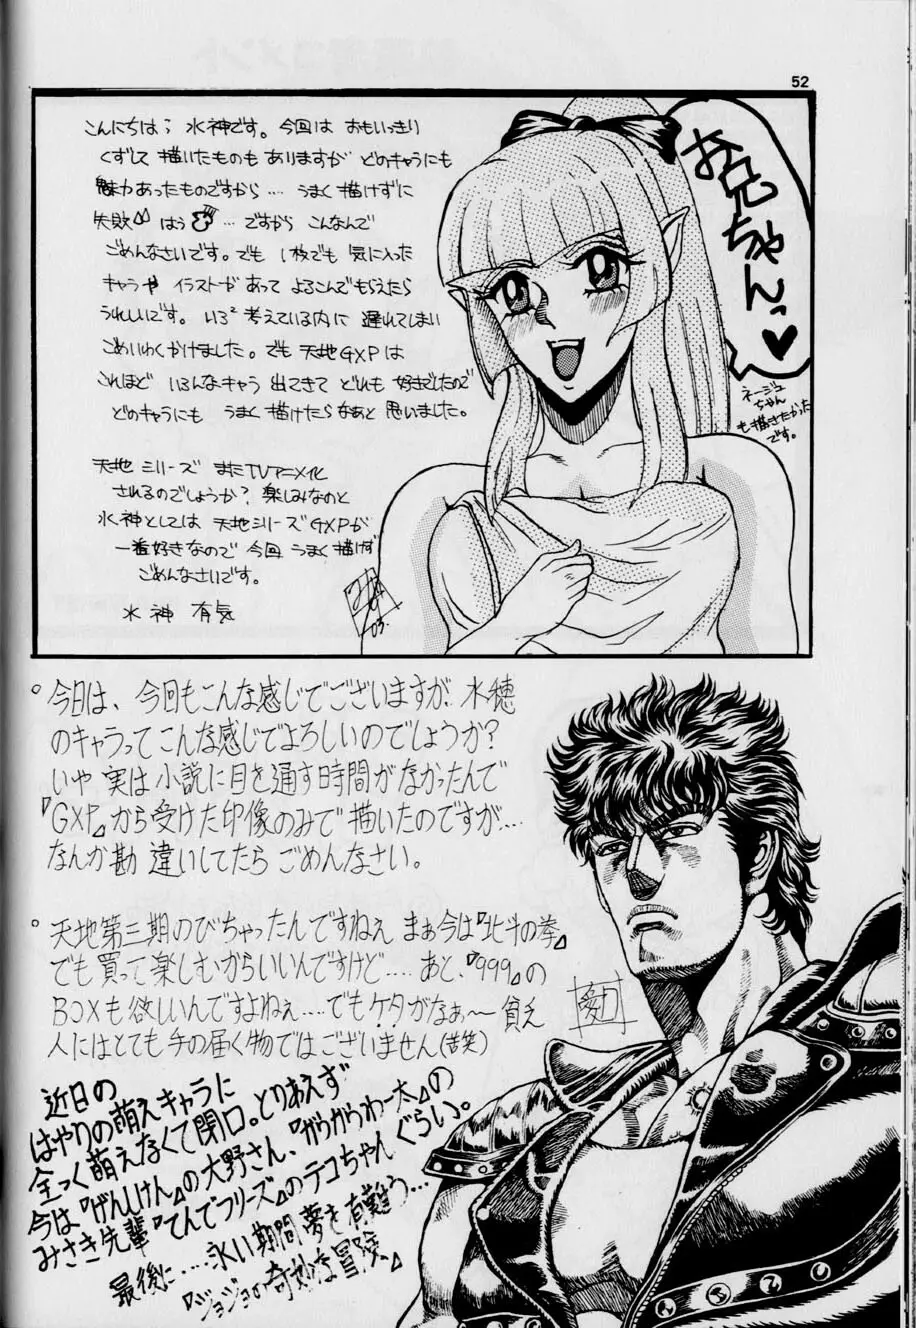 52
こんにちは、水神です。今回は おもいっきり
くずして 描いたものも ありますが どのキャラにも
魅力あったものですから‥‥ うまく描けずに
失敗 はう …ですから こんなんで
ごめんなさいです。でも 1枚でも 気に入った
キャラや イラストが あって よろこんでもらえたら
うれしいです。いろ²考えている内に 遅れてしまい
ごめいわくかけました。でも 天地GXPは
これほど いろんなキャラ 出てきて どれも 好きでしたので
どのキャラにも うまく描けたらなぁと 思いました。
天地シリーズ またTVアニメ化
されるのでしょうか? 楽しみなのと
水神としては 天地シリーズGXPが
一番好きなので 今回 うまく描けず
ごめんなさいです。
水神 有気
お兄ちゃんっ♥
ネージュ
ちゃん
も描きたかった
です。
°今日は、今回もこんな感じでございますが、水穂
のキャラってこんな感じでよろしいのでしょうか?
いや 実は小説に目を通す時間がなかったんで
『GXP』から受けた印像のみで描いたのですが‥‥
なんか勘違いしてたら ごめんなさい。
°天地第三期のびちゃったんですねぇ まぁ今は『北斗の拳』
でも買って楽しむからいいんですけど‥‥あと、『999』の
BOXも欲しいんですよねぇ‥‥でもケタがなぁ〜 貧え
人にはとても手の届く物ではございません(苦笑)
近日の
はやりの萌えキャラに
全っく萌えなくて閉口。とりあえず
今は『げんしけん』の大野さん、『がうがうわー太』の
みさき先輩『てんでフリーズ』のテコちゃんぐらい。
最後に‥‥永い期間夢を有難う‥‥
『ジョジョの奇妙な冒険』